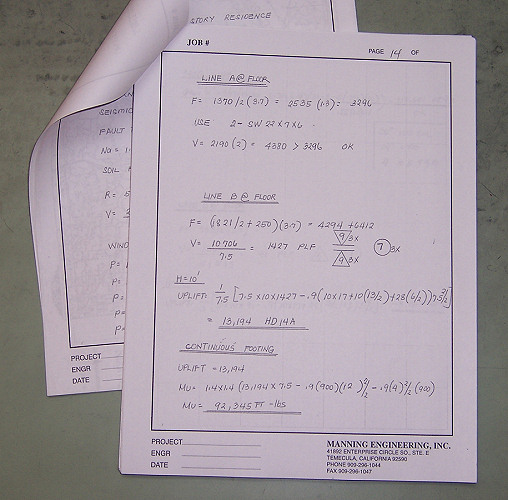 STORY RESIDENCE
JOB #
PAGE 14 OF
LINE A @ FLOOR
F = 1370/2 (3.7) = 2535 (1.3) = 3296
USE 2 - SW 22 X 7 X 6
V = 2190 (2) = 4380 > 3296 OK
LINE B @ FLOOR
F = (1821/2 + 250)(3.7) = 4294 + 6412
V = 10706 / 7.5 = 1427 PLF 9 3X 9 3X 7 3X
H = 10'
UPLIFT: 1/7.5 [7.5 X 10 X 1427 - .9(10 X 17 + 10(13/2) + 28(6/2)) 7.5²/2]
= 13,194 HD14A
CONTINUOUS FOOTING
UPLIFT = 13,194
MU = 1.4 X 1.4 (13,194 X 7.5 - .9(900)(12)²/2 - .9(4)²/2 (900)
MU = 92,345 FT-LBS
PROJECT
ENGR
DATE
MANNING ENGINEERING, INC.
41892 ENTERPRISE CIRCLE SO., STE. E
TEMECULA, CALIFORNIA 92590
PHONE 909-296-1044
FAX 909-296-1047
SEISMIC
FAULT
Na = 1.
SOIL
R = 5
V = 3
WIND
P =
P =
P =
P =
P =
PROJECT
ENGR
DATE